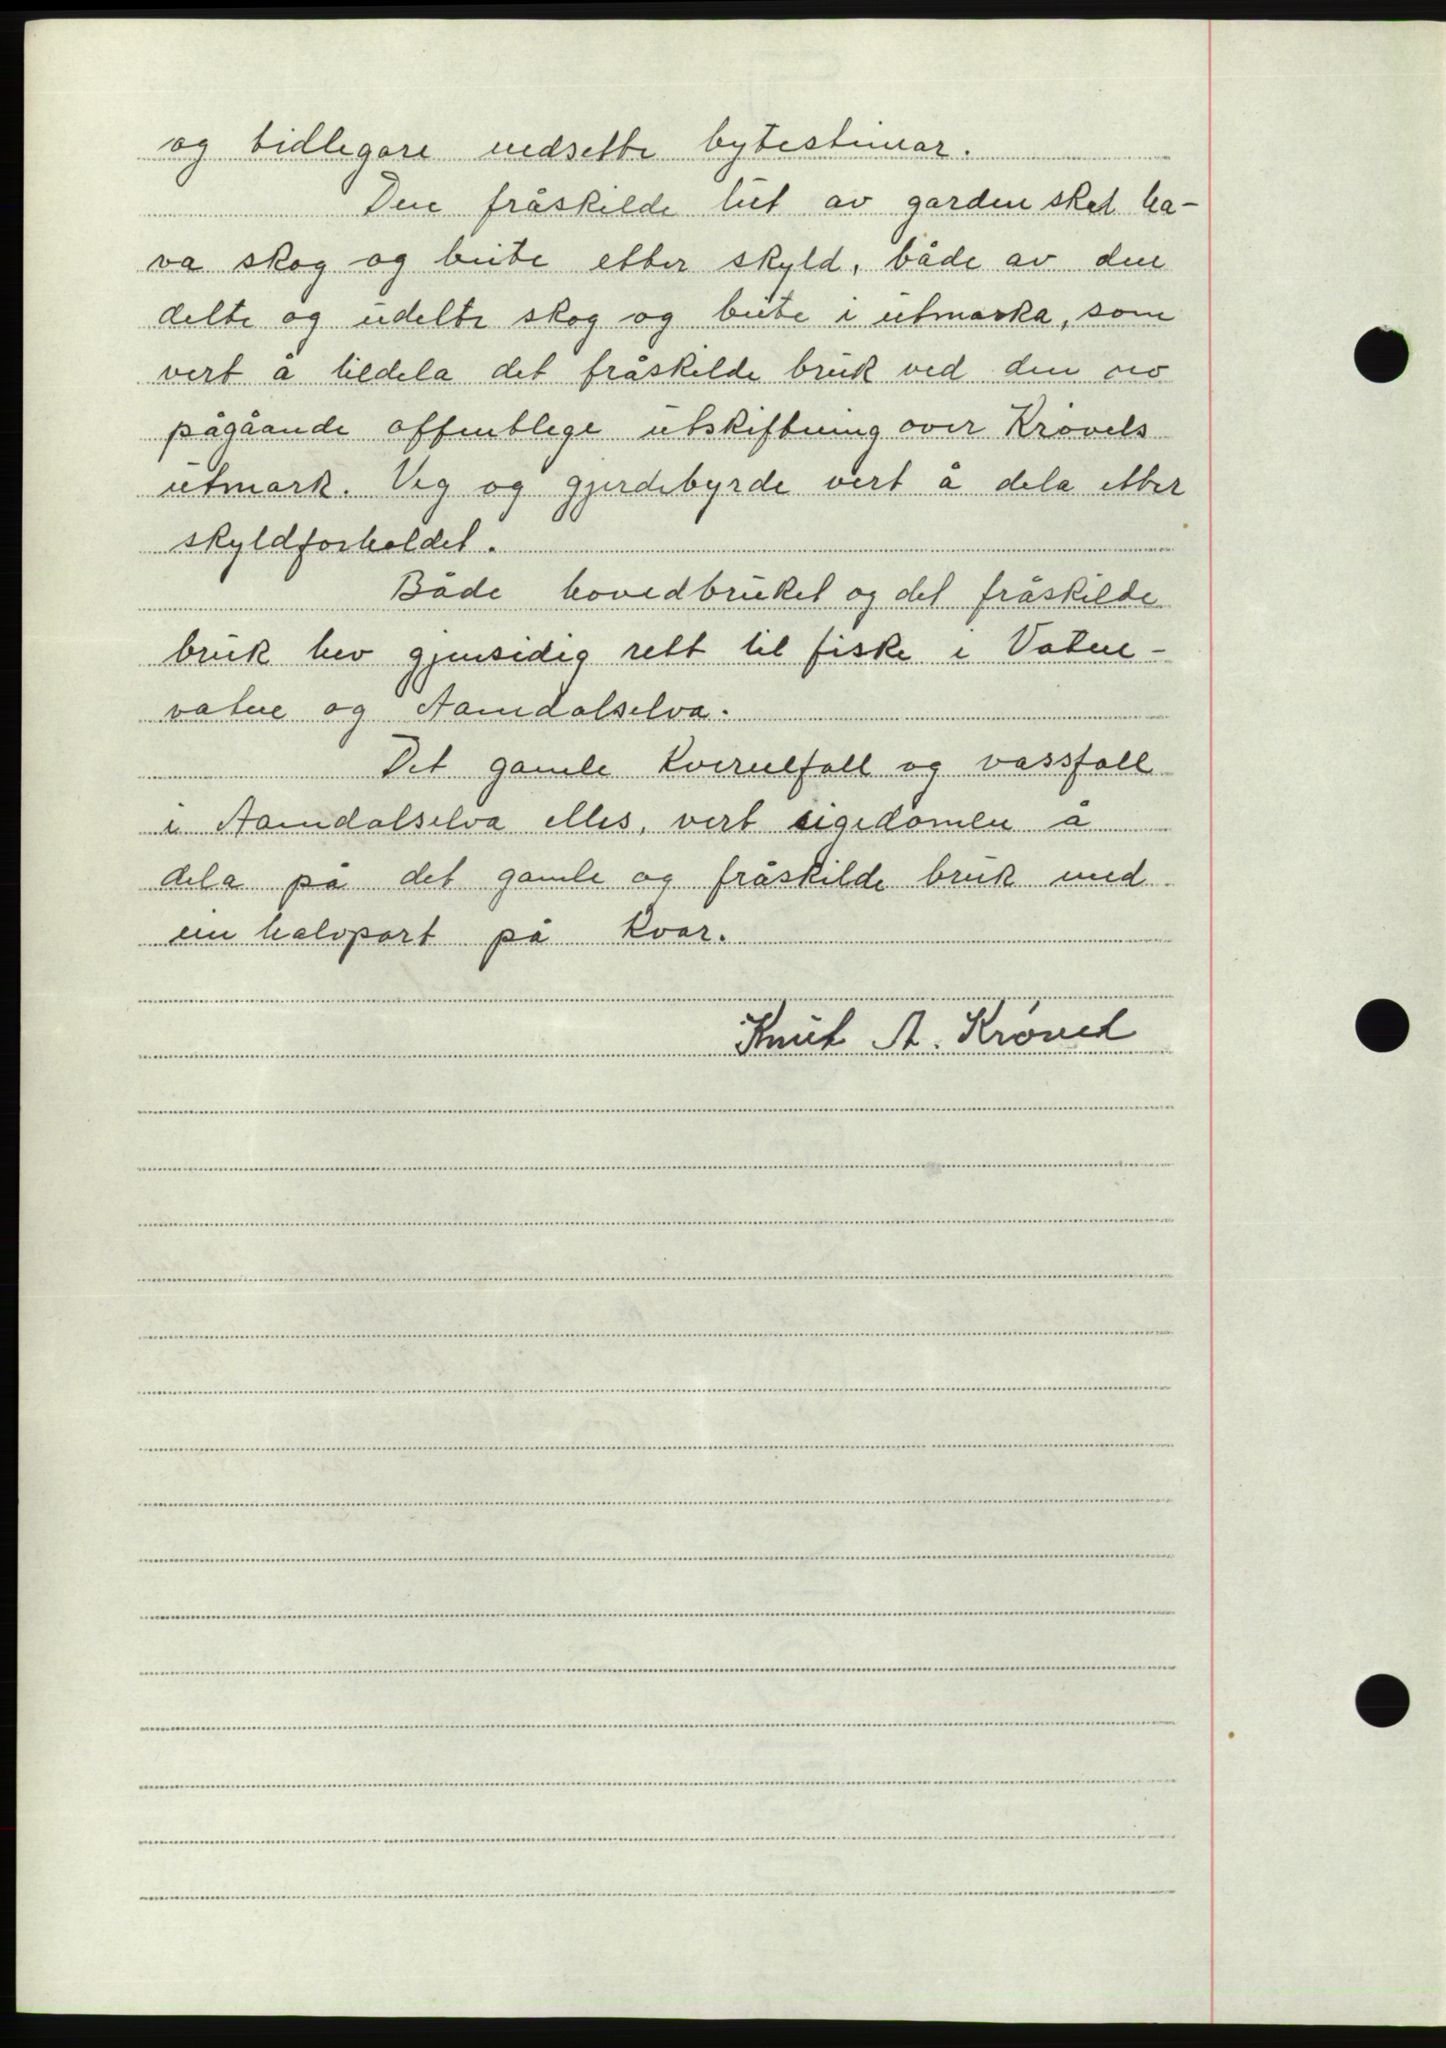 og tidlegare nedsette bytesteinar.
Den fråskilde lut av garden skal ha-
va skog og beite etter skyld, både av den
delte og udelte skog og beite i utmarka, som
vert å tildela det fråskilde bruk ved den no
pågåande offentlege utskiftning over Krøvels
utmark. Veg og gjerdebyrde vert å dela etter
skyldforholdet.
Både hovedbruket og det fråskilde
bruk hev gjensidig rett til fiske i Vatne-
vatne og Aamdalselva.
Det gamle kvernfall og vassfall
i Aamdalselva elles, vert eigedomen å
dela på det gamle og fråskilde bruk med
ein halvpart på kvar.
Knut A. Krøvel